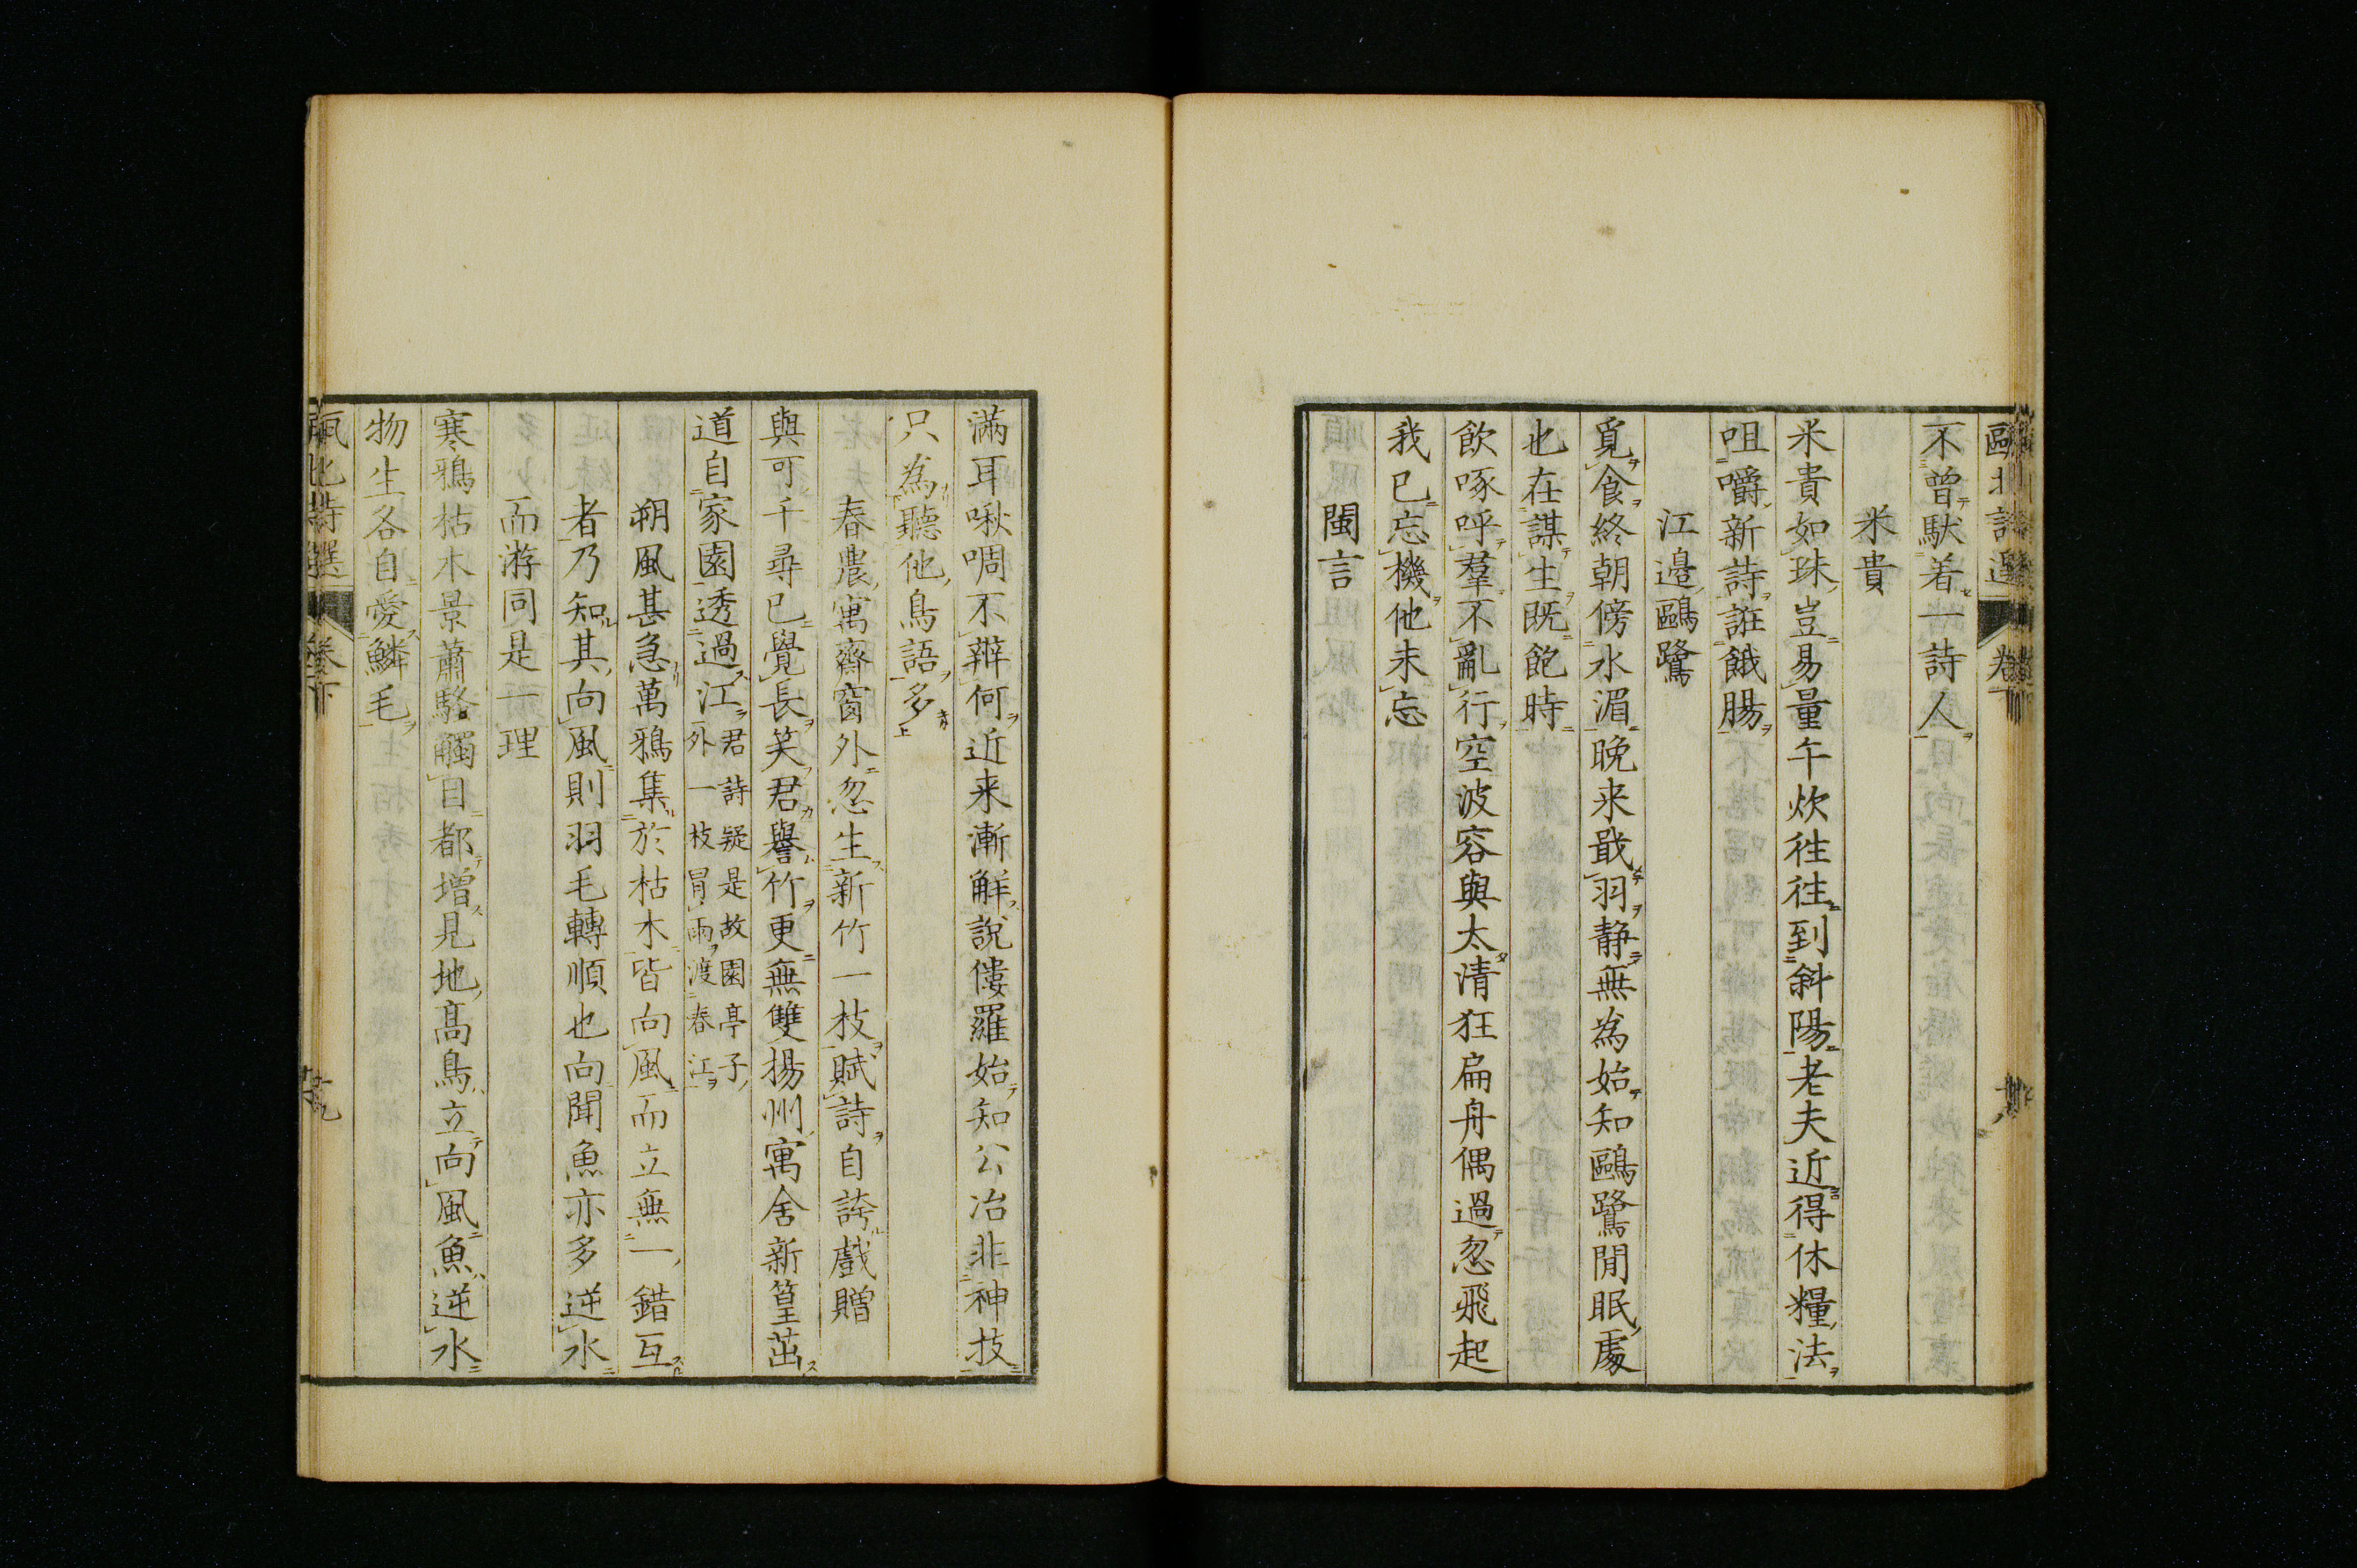 不曾馱着一詩人
米貴
米貴如珠豈易量午炊往往到斜陽老夫近得休糧法
咀嚼新詩誑餓腸
江邊鷗鷺
覓食終朝傍水湄晚来戢羽静無為始知鷗鷺閒眠處
也在謀生既飽時
飲啄呼羣不亂行空波容與太清狂扁舟偶過忽飛起
我已忘機他未忘
閩言
滿耳啾啁不辨何近来漸解說僂羅始知公冶非神技
只為聽他鳥語多
春農寓齋窗外忽生新竹一枝賦詩自誇戲贈
與可千尋已覺長笑君譽竹更無雙揚州寓舍新篁茁
道自家園透過江君詩疑是故園亭子
外一枝冐雨渡春江
朔風甚急萬鴉集於枯木皆向風而立無一錯互
者乃知其向風則羽毛轉順也向聞魚亦多逆水
而游同是一理
寒鴉枯木景蕭駱觸目都增見地高鳥立向風魚逆水
物生各自愛鱗毛
甌北詩選 卷下